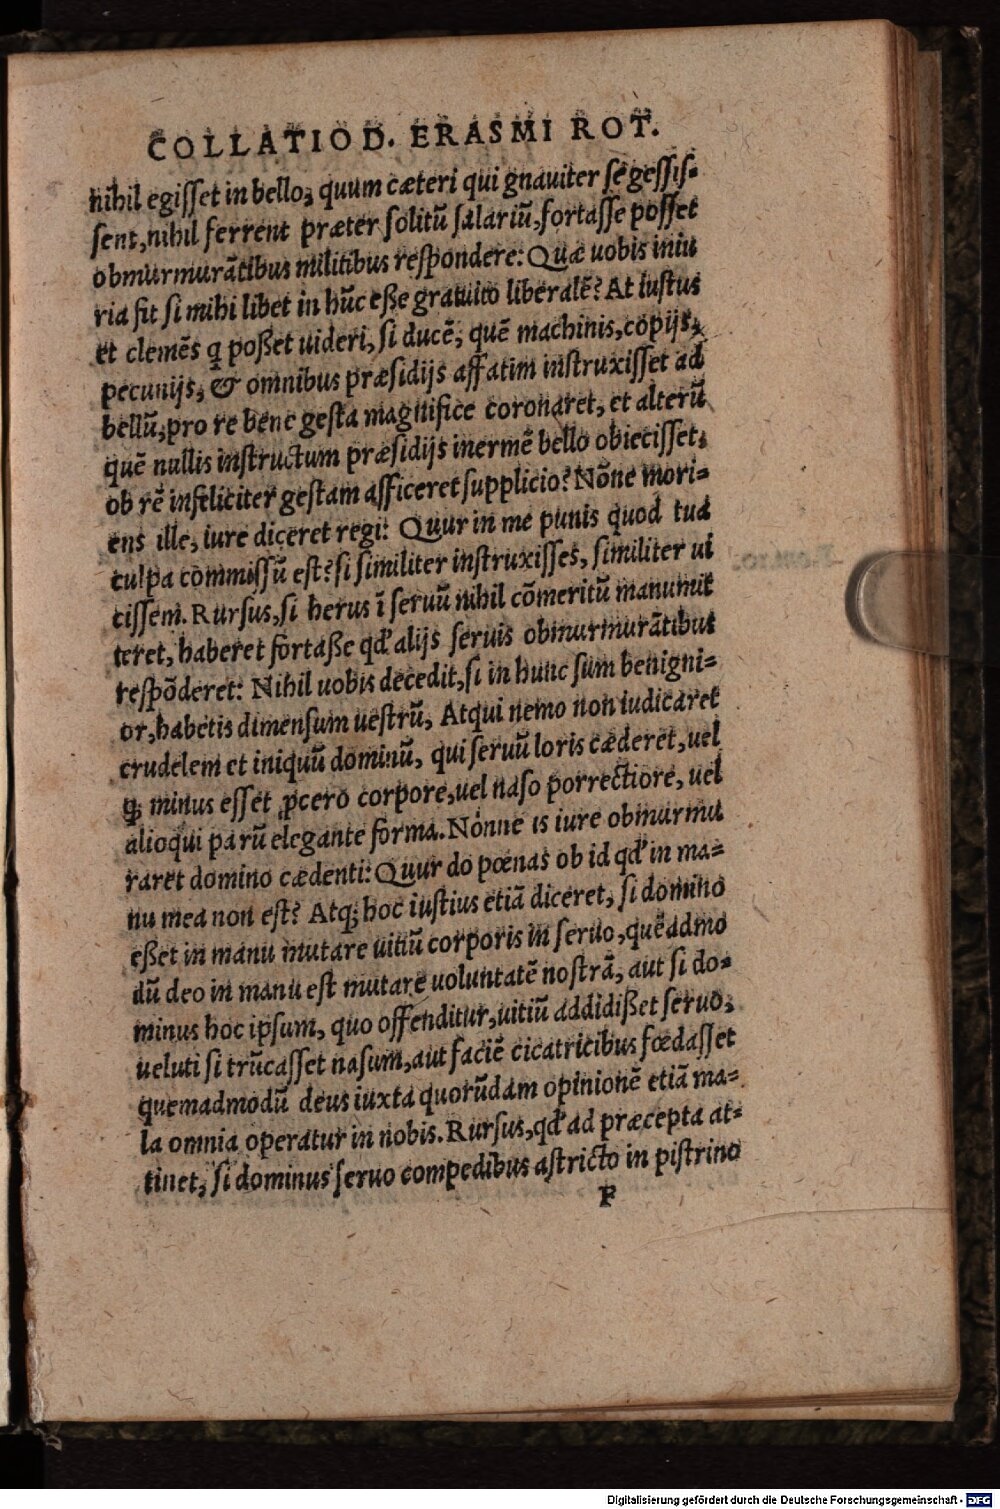 COLLATIO D. ERASMI ROT.
nihil egisset in bello, quum cæteri qui gnauiter se gessis-
sent, nihil ferrent præter solitũ salariũ, fortasse posset
obmurmurãtibus militibus respondere: Quæ uobis iniu
ria fit si mihi libet in hũc eße gratuito liberalẽ? At iustus
et clemẽs q̃ poßet uideri, si ducẽ, quẽ machinis, copijs,
pecunijs, & omnibus præsidijs affatim instruxisset ad
bellũ, pro re bene gesta magnifice coronaret, et alterũ
quẽ nullis instructum præsidijs inermẽ bello obiecisset,
ob rẽ infeliciter gestam afficeret supplicio? Nõne mori-
ens ille, iure diceret regi: Quur in me punis quod tua
culpa commissũ est? si similiter instruxisses, similiter ui
cissem. Rursus, si herus ĩ seruũ nihil cõmeritũ manumit
teret, haberet fortaße qđ alijs seruis obmurmurãtibus
respõderet: Nihil uobis decedit, si in hunc sum benigni-
or, habetis dimensum uestrũ, Atqui nemo non iudicaret
crudelem et iniquũ dominũ, qui seruũ loris cæderet, uel
ꝙ minus esset ꝓcero corpore, uel naso porrectiore, uel
alioqui parũ elegante forma. Nonne is iure obmurmu
raret domino cædenti: Quur do pœnas ob id qđ in ma-
nu mea non est? Atq; hoc iustius etiã diceret, si domino
eßet in manu mutare uitiũ corporis in seruo, quẽadmo
dũ deo in manu est mutare uoluntatẽ nostrã, aut si do-
minus hoc ipsum, quo offenditur, uitiũ addidißet seruo,
ueluti si trũcasset nasum, aut faciẽ cicatricibus fœdasset
quemadmodũ deus iuxta quorũdam opinionẽ etiã ma-
la omnia operatur in nobis. Rursus, qđ ad præcepta at-
tinet, si dominus seruo compedibus astricto in pistrino
F
Digitalisierung gefördert durch die Deutsche Forschungsgemeinschaft - DFG